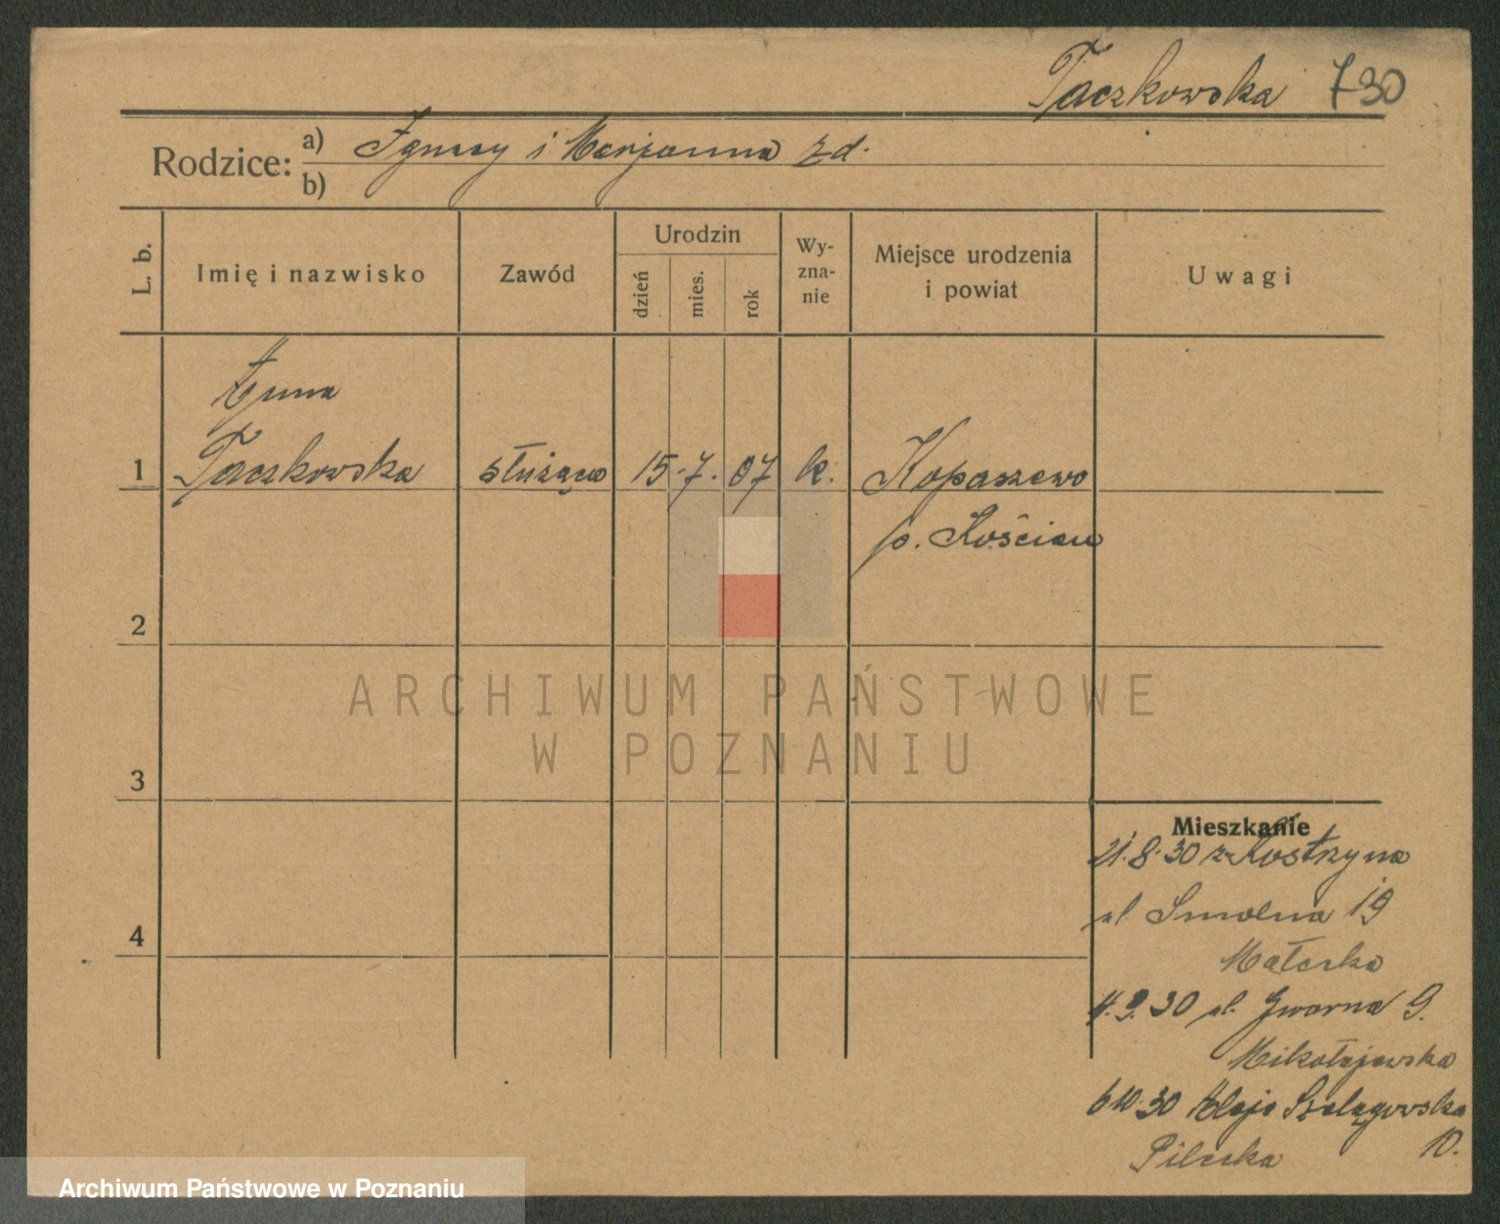 Taczkowska 730
Rodzice: a) Ignacy i Marjanna zd.
b)
L. b. Imię i nazwisko Zawód Urodzin dzień mies. rok Wy-zna-nie Miejsce urodzenia i powiat Uwagi
Anna
1 Taczkowska służąca 15. 7. 07 k. Kopaszewo
p. Kościan
2
3
4
Mieszkanie
21.8.30 z Kostrzyna
ul. Smolna 19
Małecka
4.9.30 ul. Gwarna 9.
Mikołajewska
6 10.30 Aleje Szelągowska
Pilecka 10.
ARCHIWUM PAŃSTWOWE
W POZNANIU
Archiwum Państwowe w Poznaniu